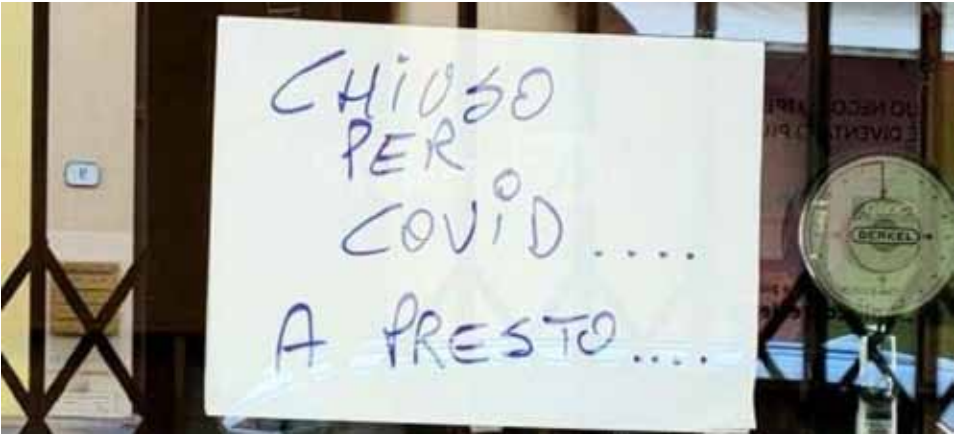 CHiUSO
PER
COViD ....
A PRESTO ....
BERKEL